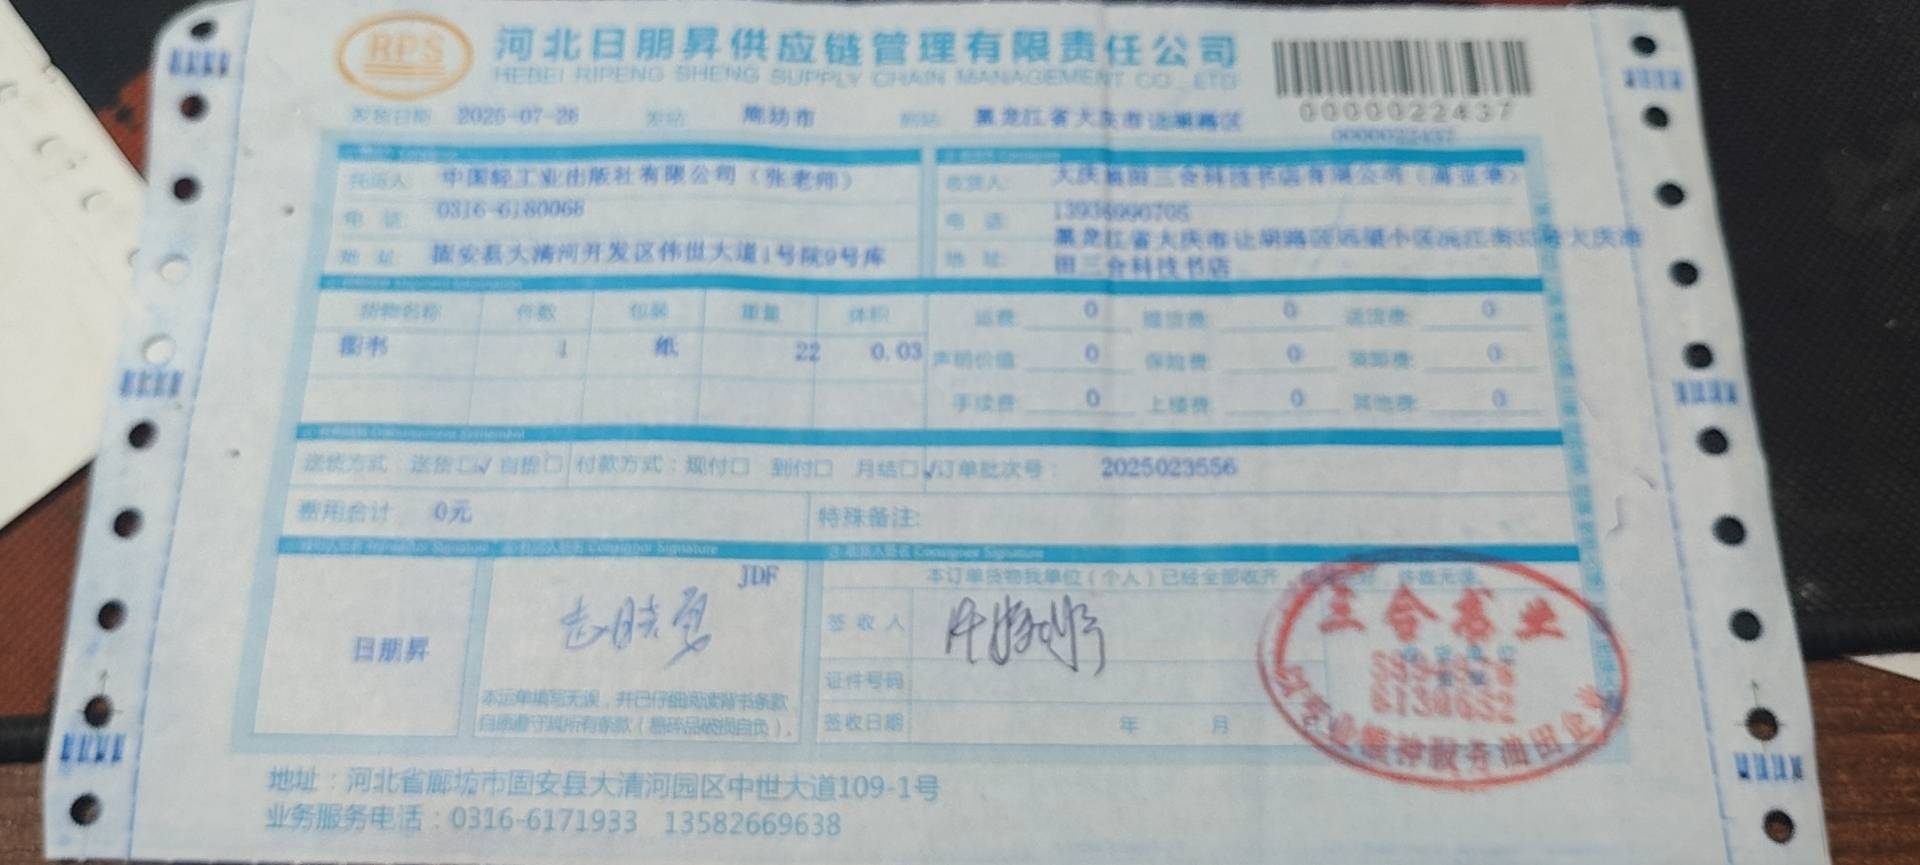 RPS
河北日朋昇供应链管理有限责任公司
HEBEI RIPENG SHENG SUPPLY CHAIN MANAGEMENT CO.,LTD
0000022437
0000022437
发货日期 2025-07-26 发站 廊坊市 到站 黑龙江省大庆市让胡路区
托运人 中国轻工业出版社有限公司（张老师）
电 话 0316-6180068
地 址 固安县大清河开发区伟世大道1号院9号库
收货人 大庆油田三合科技书店有限公司
电 话
地 址 黑龙江省大庆市让胡路区远望小区 大庆油
田三合科技书店
货物名称 件数 包装 重量 体积
图书 1 纸 22 0.03
运费 0 提货费 0 送货费 0
声明价值 0 保险费 0 装卸费 0
手续费 0 上楼费 0 其他费 0
送货方式：送货□√ 自提□ 付款方式：现付□ 到付□ 月结□√ 订单批次号： 2025023556
费用合计 0元 特殊备注:
Consignor Signature
Consignee Signature
日朋昇
JDF
本运单填写无误，并已仔细阅读背书条款
自愿遵守其所有条款（易碎品破损自负）。
本订单货物我单位（个人）已经全部收齐，
签 收 人
证件号码
签收日期 年 月
三合书业
地址：河北省廊坊市固安县大清河园区中世大道109-1号
业务服务电话：0316-6171933 13582669638